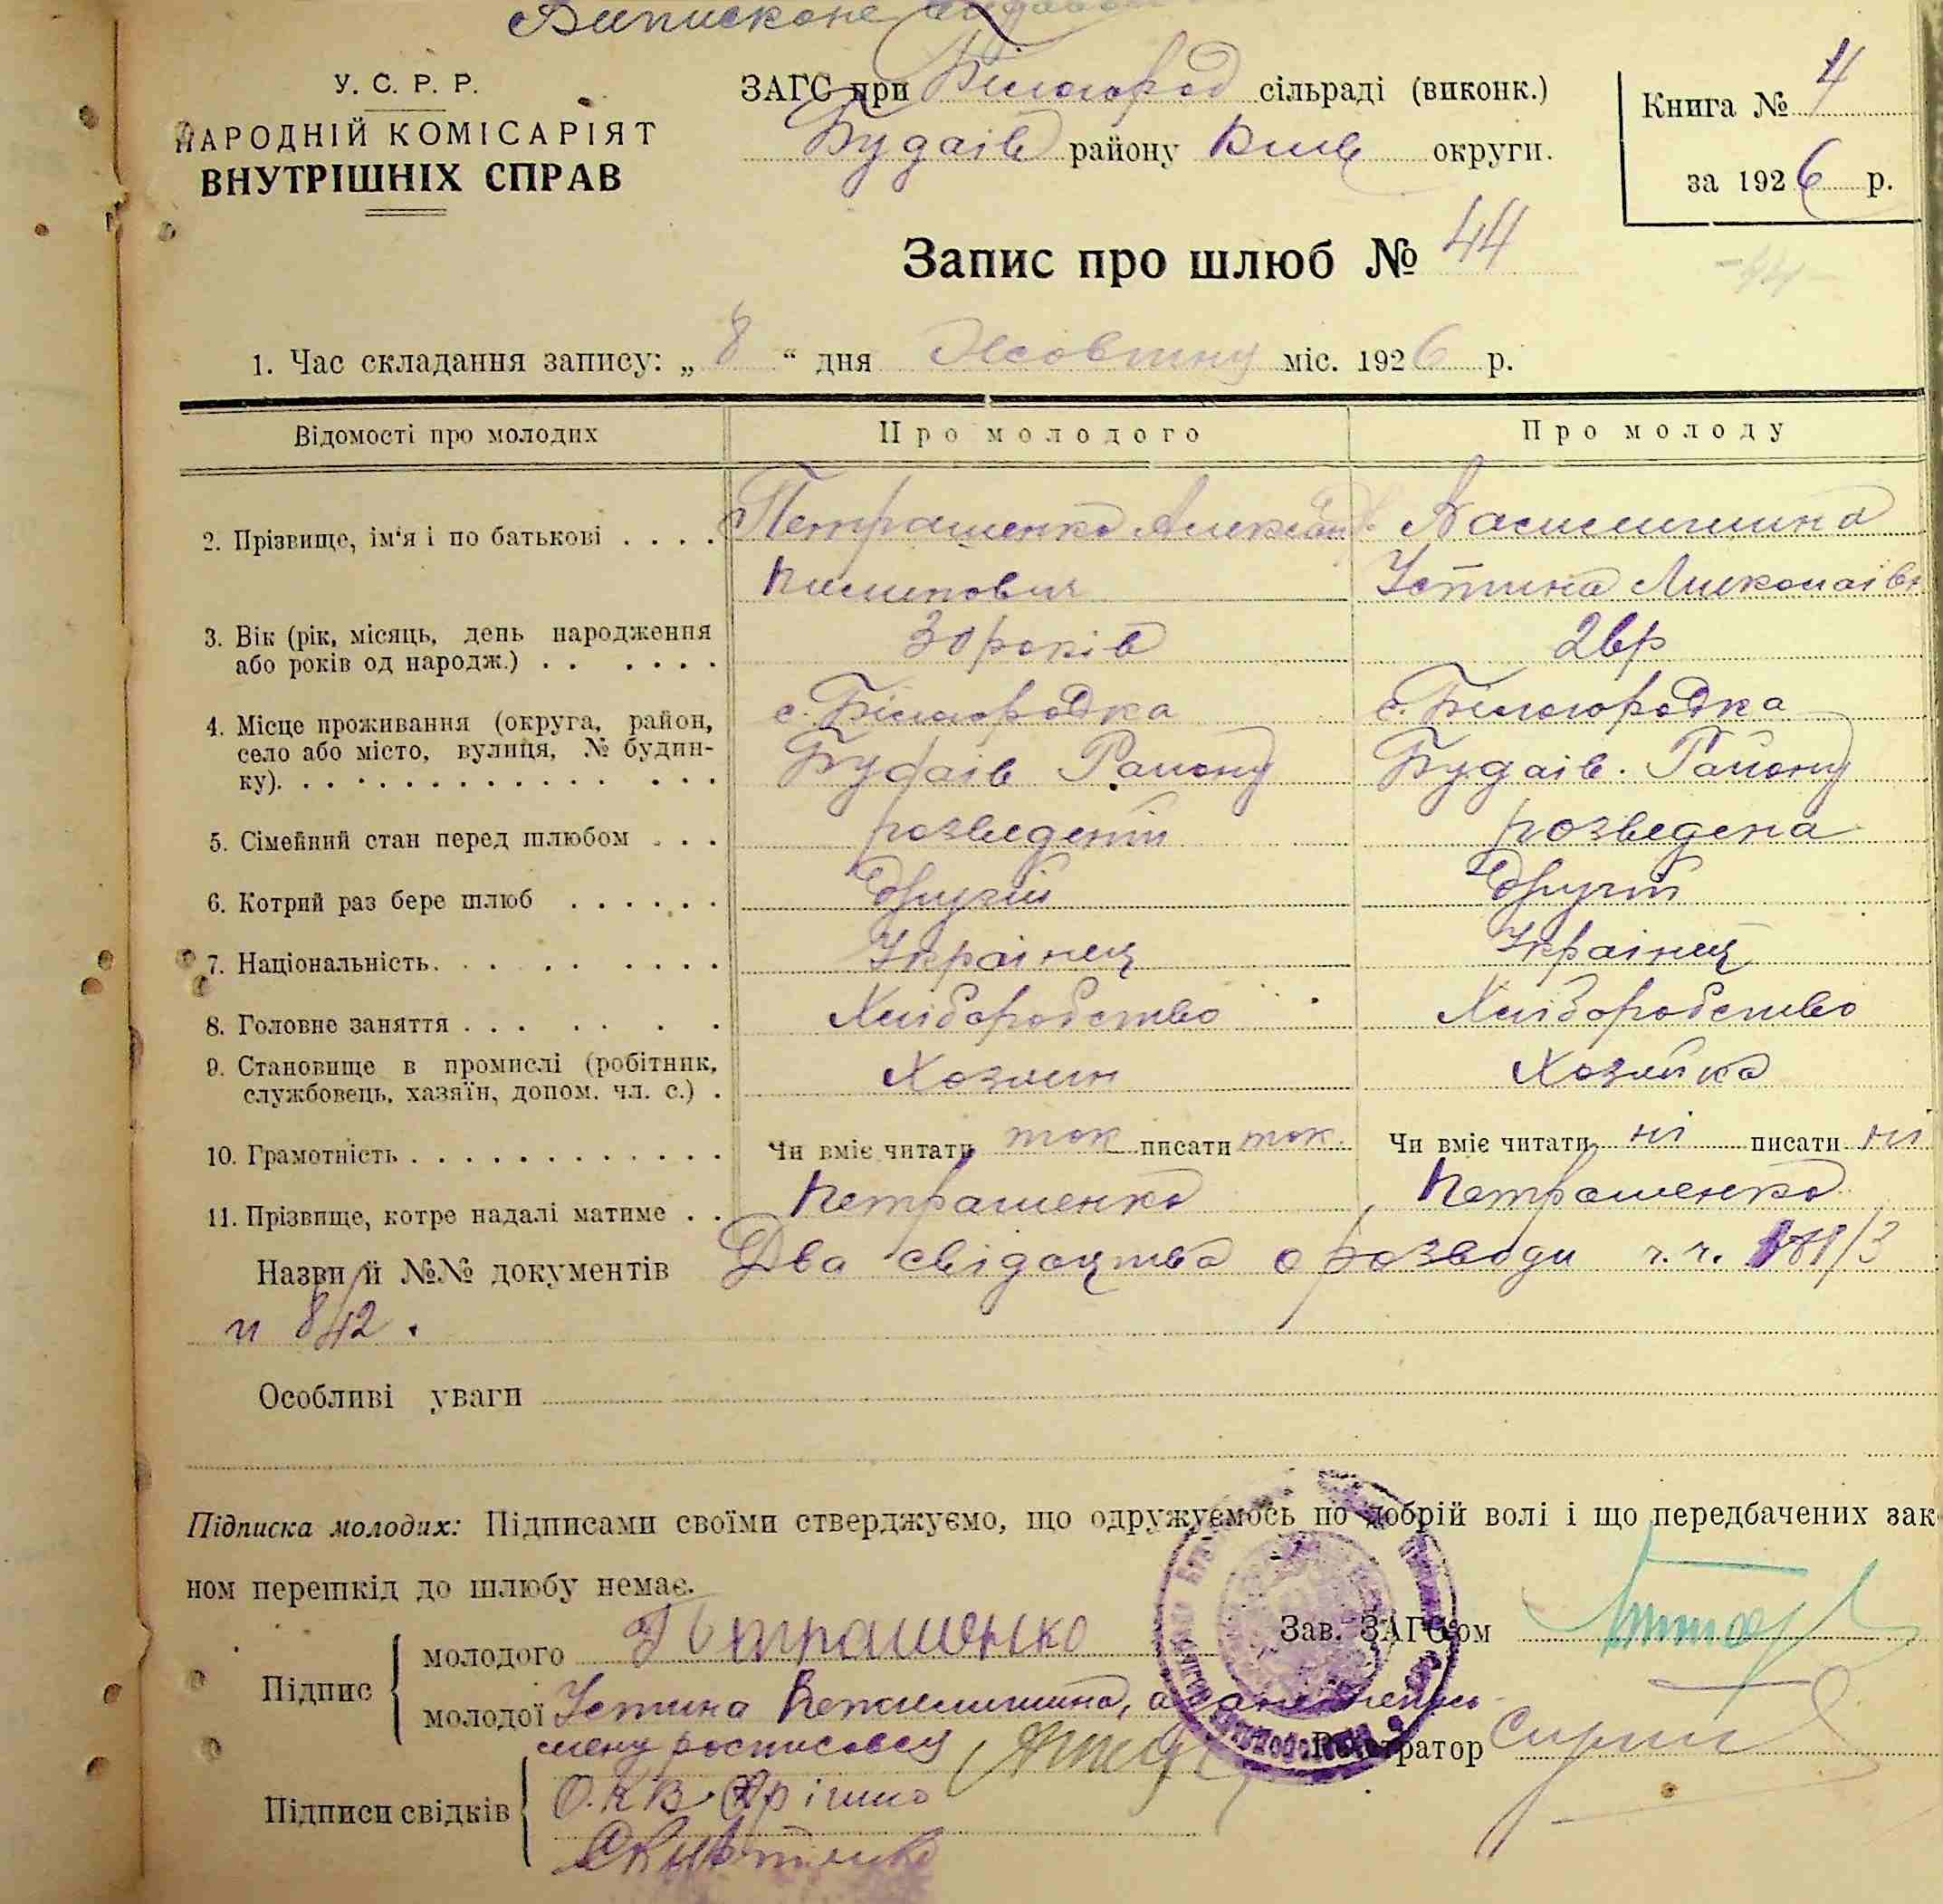 Виписконе
У. С. Р. Р.
НАРОДНІЙ КОМІСАРІЯТ
ВНУТРІШНІХ СПРАВ
ЗАГС при Білогород сільраді (виконк.)
Будаів району Київ округи.
Книга №
за 1926 р.
Запис про шлюб № 44
-44-
1. Час складання запису: „ 8 “ дня Жовтня міс. 1926 р.
Відомості про молодих Про молодого Про молоду
2. Прізвище, ім'я і по батькові . . . . Петрашенко Александ.
Пилипович Устина Миколаівн
3. Вік (рік, місяць, день народження або років од народж.) . . . . . . 30 років 26 р
4. Місце проживання (округа, район, село або місто, вулиця, № будинку). с. Білогородка с. Білогородка
Будаів Району Будаів. Району
5. Сімейний стан перед шлюбом . . . розведений розведена
6. Котрий раз бере шлюб . . . . . . другий другий
7. Національність. . . . . . . . . Украінец Украінец
8. Головне заняття . . . . . . . Хліборобство Хліборобство
9. Становище в промислі (робітник, службовець, хазяїн, допом. чл. с.) . Хозяин Хозяйка
10. Грамотність . . . . . . . . . . . . . Чи вміє читати так писати так. Чи вміє читати ні писати ні
11. Прізвище, котре надалі матиме . . Петрашенко Петрашенко
Назви й №№ документів Два свідоцтва о розводи ч. ч.
и 842.
Особливі уваги
Підписка молодих: Підписами своїми стверджуємо, що одружуємось по добрій волі і що передбачених зак
ном перешкід до шлюбу немає.
Підпис
молодого Петрашенко
Зав. ЗАГС'ом
молодої Устина
росписавсь
Реєстратор
Підписи свідків